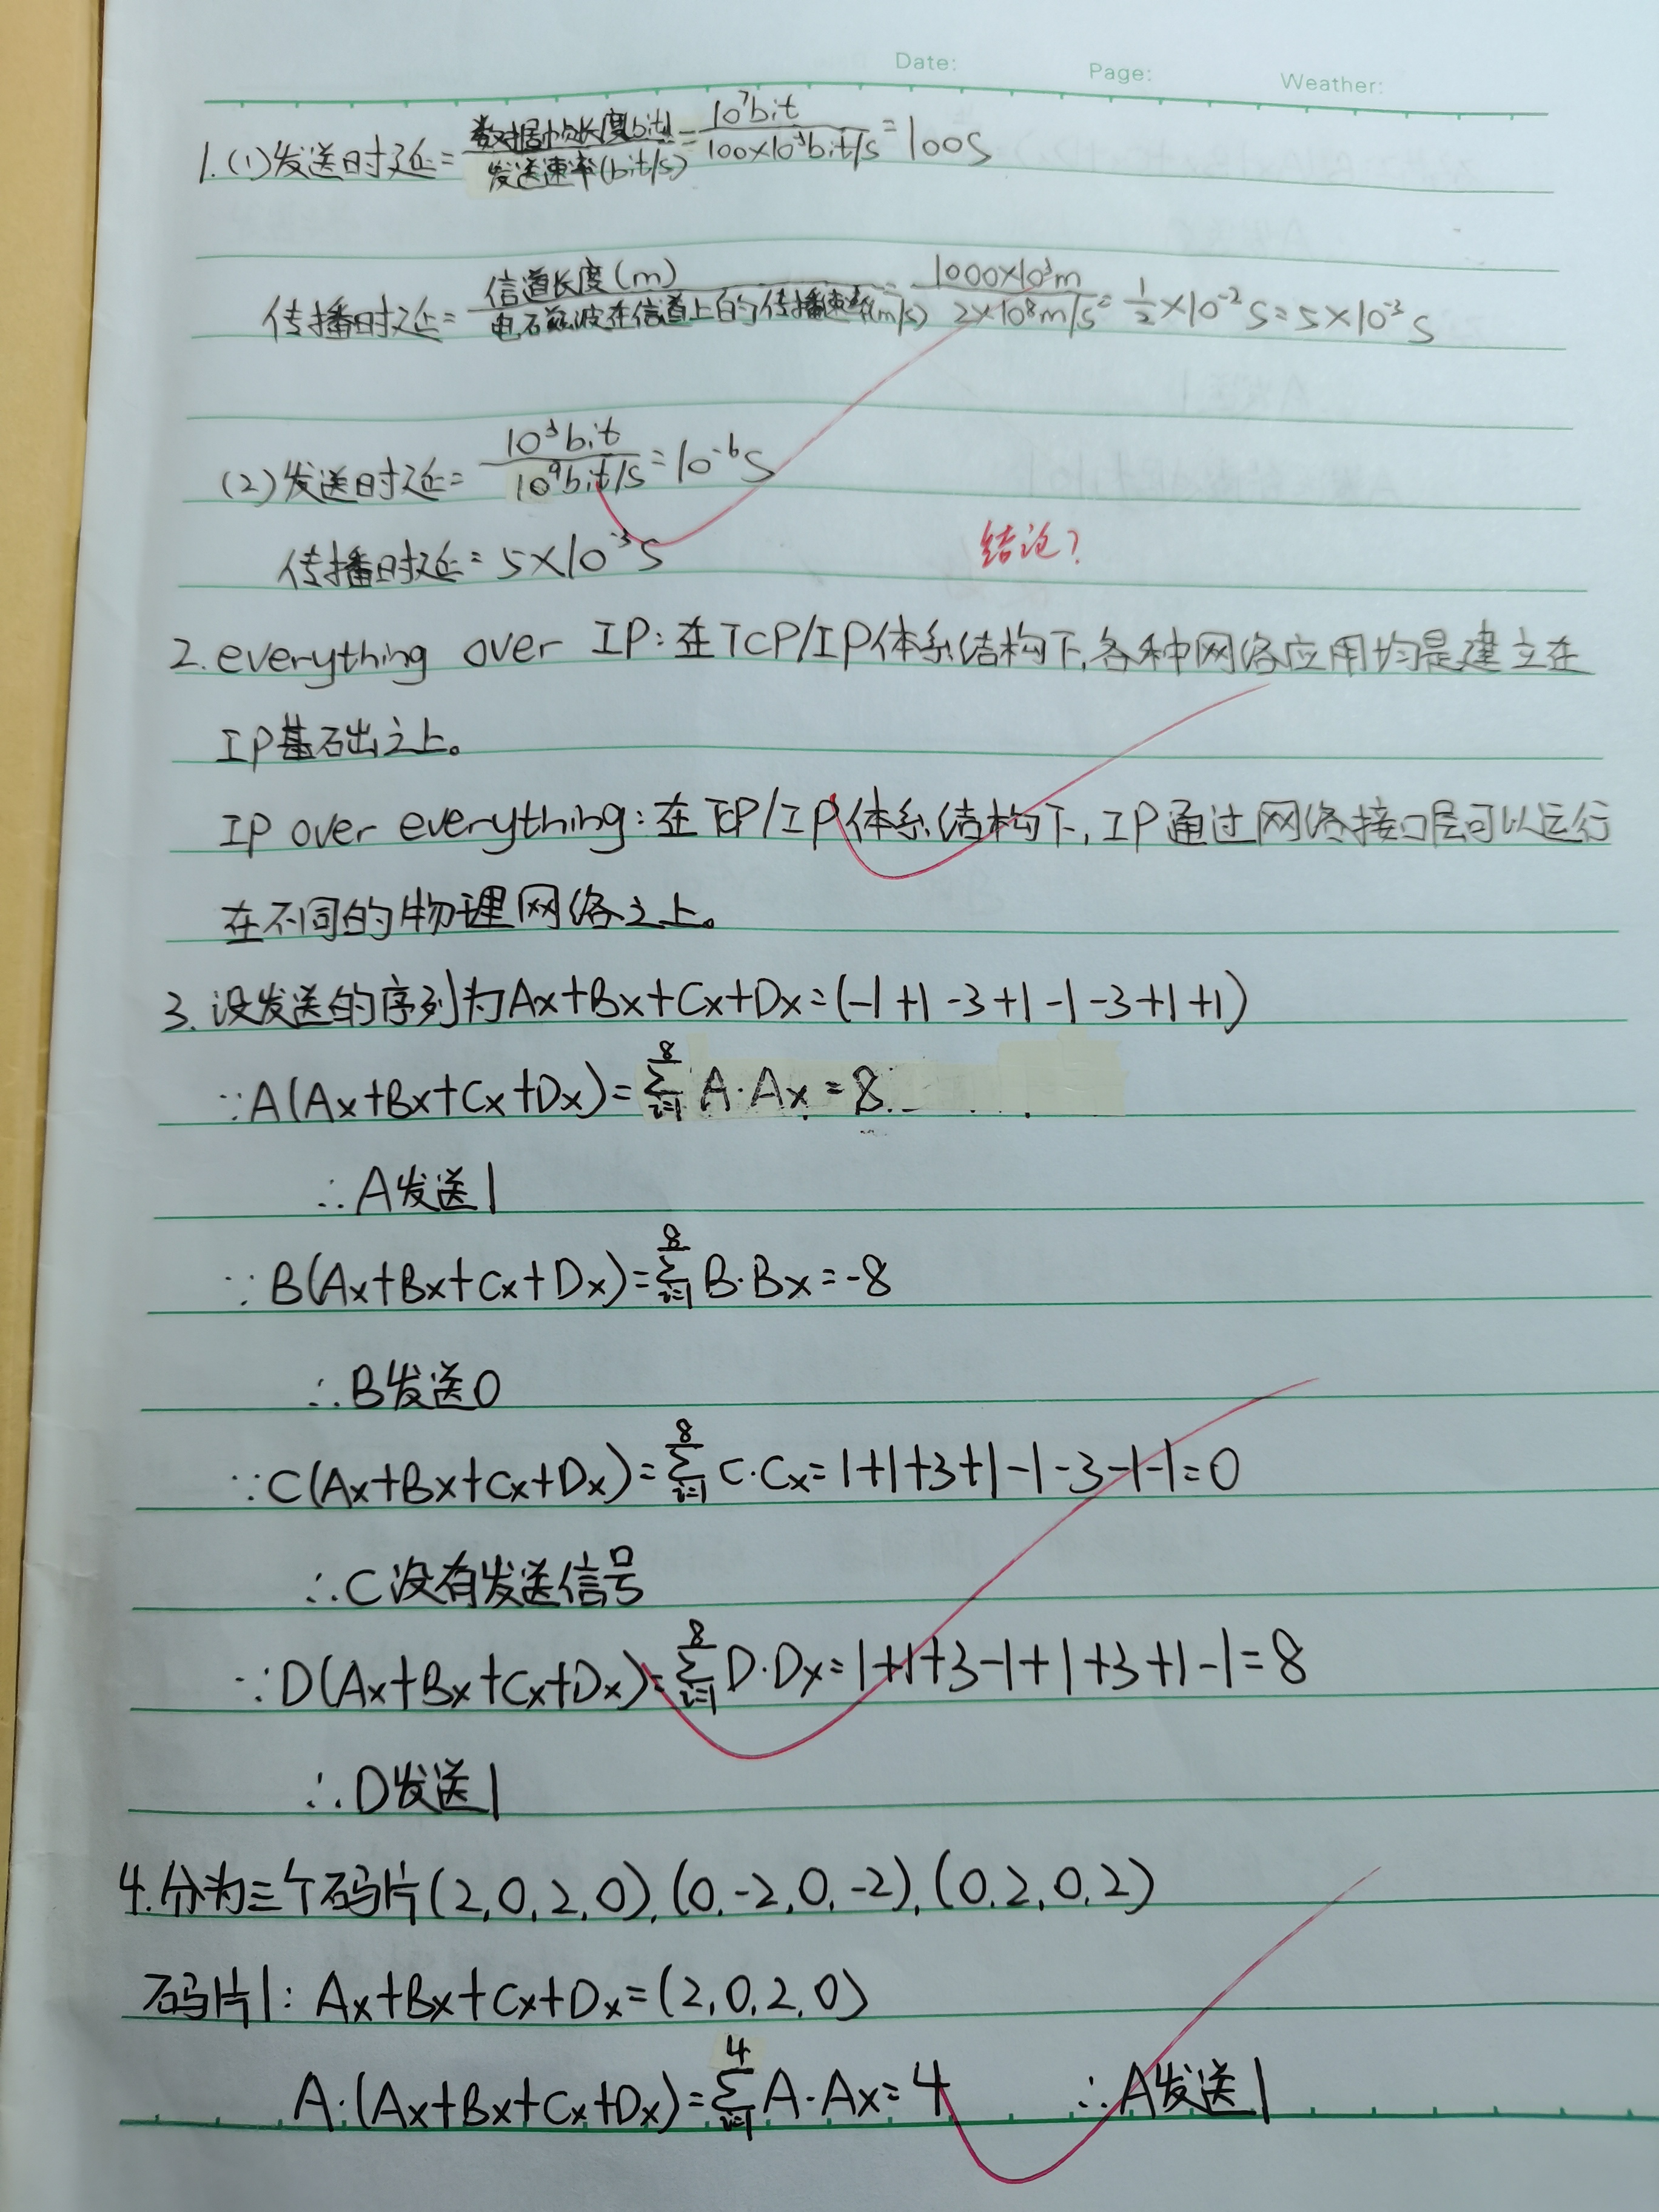 Date: Page: Weather:
1.(1)发送时延=数据帧长度(bit)/发送速率(bit/s)=10⁷bit/100×10³bit/s=100s
传播时延=信道长度(m)/电磁波在信道上的传播速率(m/s)=1000×10³m/2×10⁸m/s=1/2×10⁻²s=5×10⁻³s
(2)发送时延=10³bit/10⁹bit/s=10⁻⁶s
传播时延=5×10⁻³s
结论?
2.everything over IP:在TCP/IP体系结构下,各种网络应用均是建立在
IP基础之上。
IP over everything:在TCP/IP体系结构下,IP通过网络接口层可以运行
在不同的物理网络之上。
3.设发送的序列为Ax+Bx+Cx+Dx=(-1+1-3+1-1-3+1+1)
∵A(Ax+Bx+Cx+Dx)=∑⁸ᵢ₌₁A·Ax=8
∴A发送1
∵B(Ax+Bx+Cx+Dx)=∑⁸ᵢ₌₁B·Bx=-8
∴B发送0
∵C(Ax+Bx+Cx+Dx)=∑⁸ᵢ₌₁C·Cx=1+1+3+1-1-3-1-1=0
∴C没有发送信号
∵D(Ax+Bx+Cx+Dx)=∑⁸ᵢ₌₁D·Dx=1+1+3-1+1+3+1-1=8
∴D发送1
4.分为三个码片(2,0,2,0),(0,-2,0,-2),(0,2,0,2)
码片1:Ax+Bx+Cx+Dx=(2,0,2,0)
A·(Ax+Bx+Cx+Dx)=∑⁴ᵢ₌₁A·Ax=4 ∴A发送1